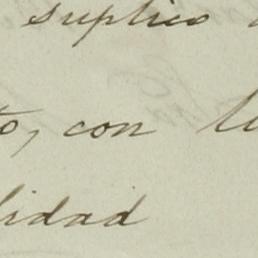 suplico
to, con
lidad